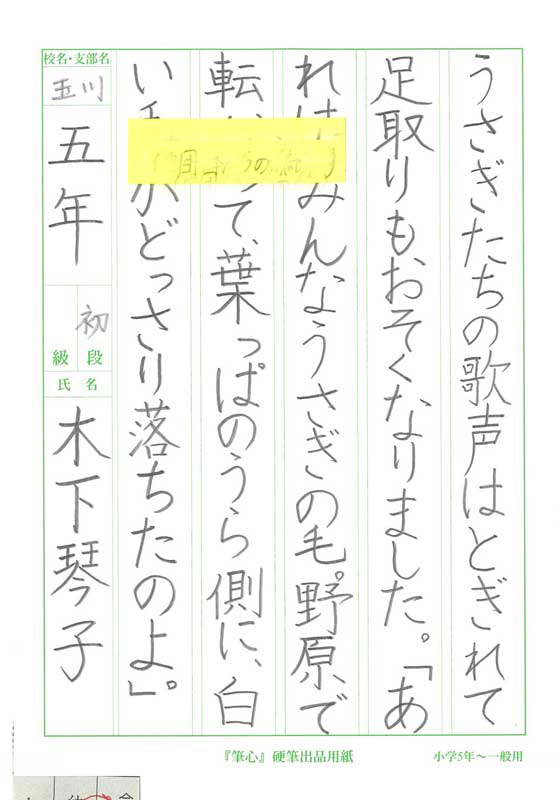 うさぎたちの歌声はとぎれて
足取りも、おそくなりました。「あ
れはみんなうさぎの毛。野原で
転 て、葉っぱのうら側に、白
い がどっさり落ちたのよ」。
校名・支部名
玉川
五年
初
級 段
氏 名
木下琴子
『筆心』硬筆出品用紙
小学5年〜一般用